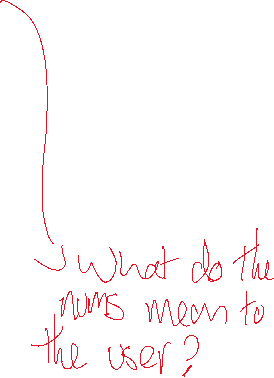 What do the
nums mean to
the user?